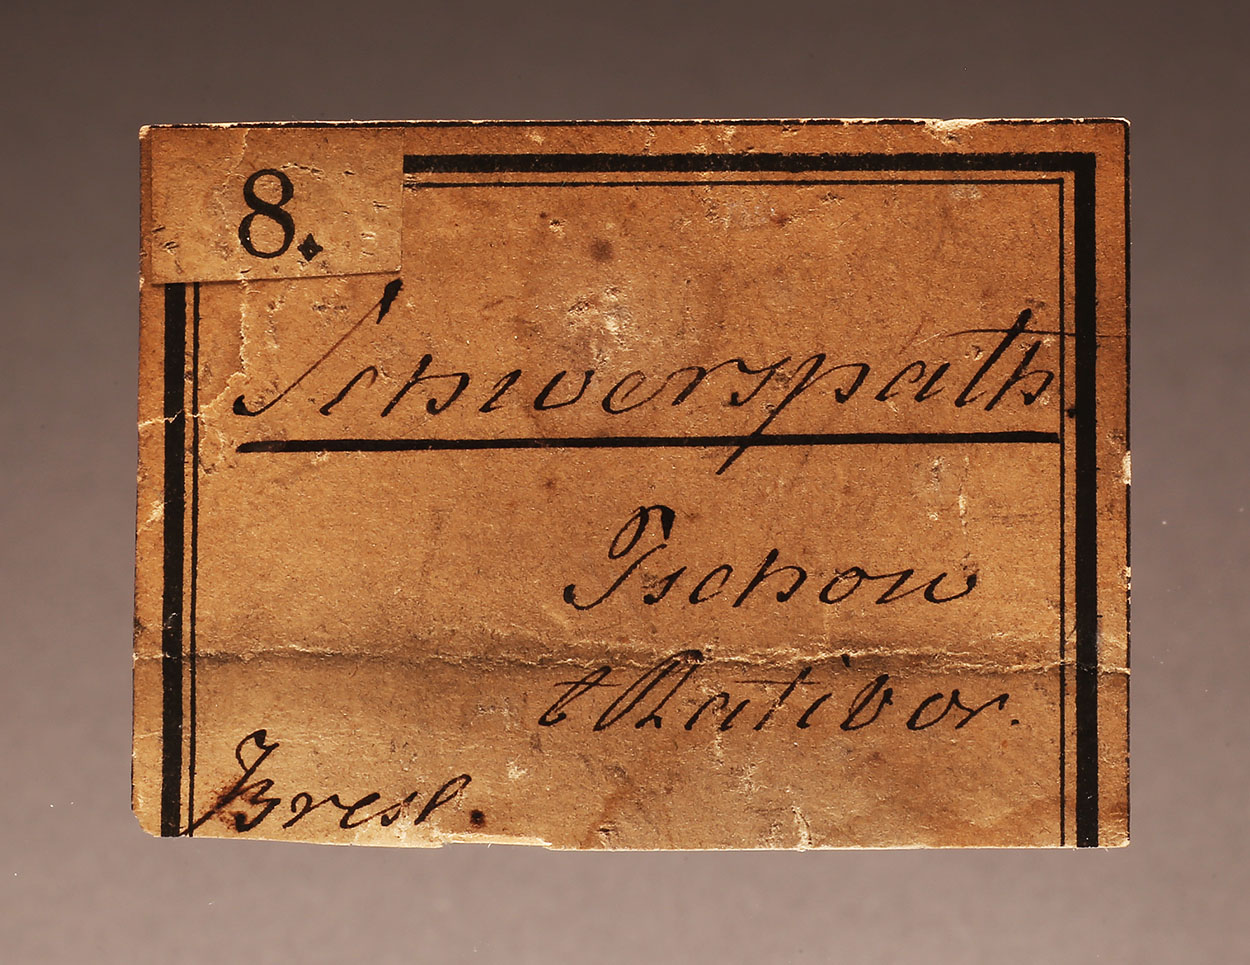 8.
Schwerspath
Pschow
b Ratibor.
Bresl.